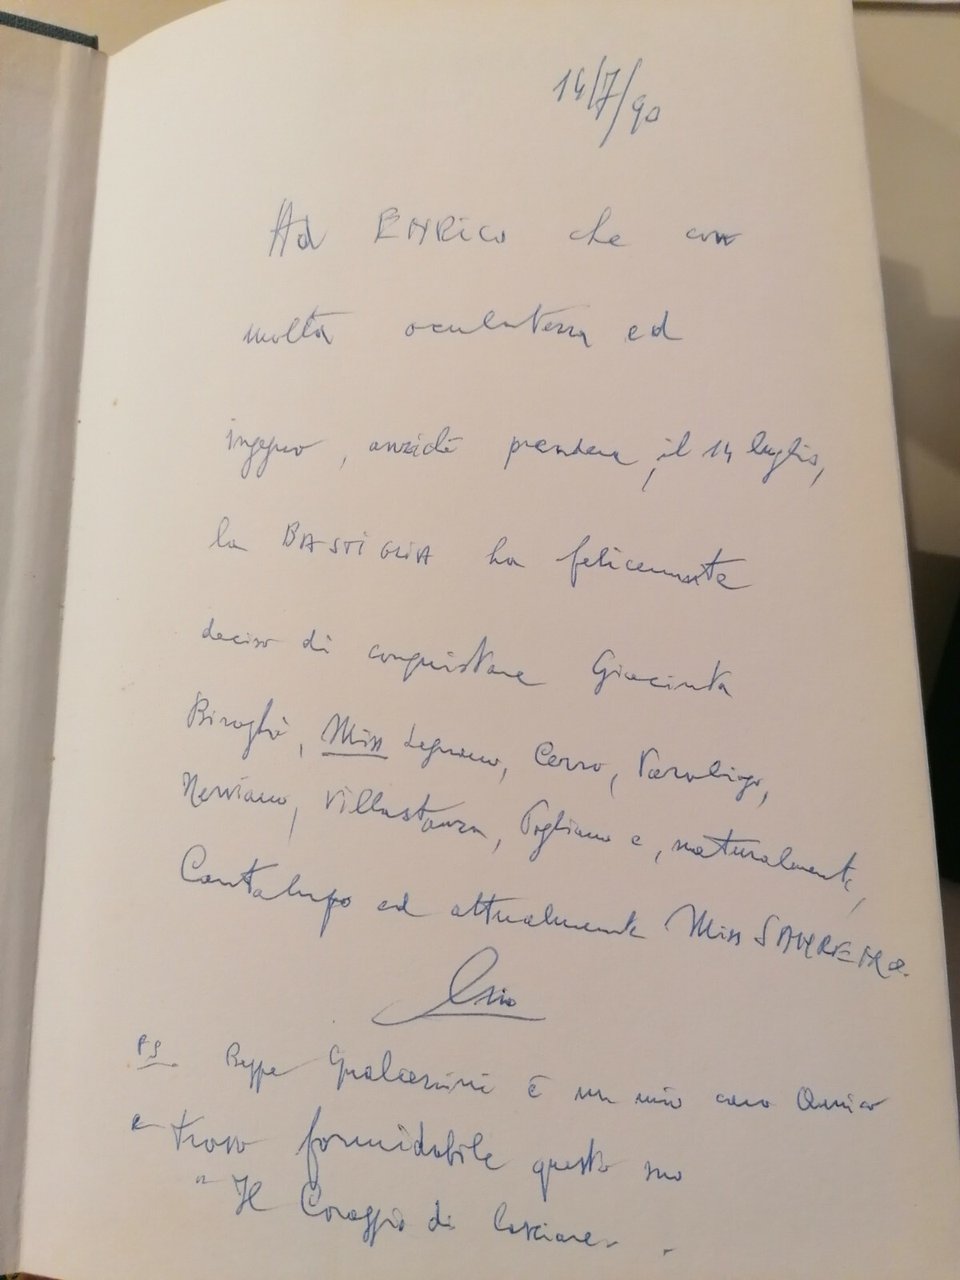 14/7/90
Ad ENRICO che con
molta oculatezza ed
ingegno, anziché prendere, il 14 luglio,
la BASTIGLIA ha felicemente
deciso di conquistare Giacinta
Miss Legnano, Cerro,
Nerviano, Villastanza, Pogliano e, naturalmente,
Cantalupo ed attualmente Miss SANREMO.
PS. Beppe è un mio caro Amico
e trovo formidabile questo suo
"Il Coraggio di lasciare" .